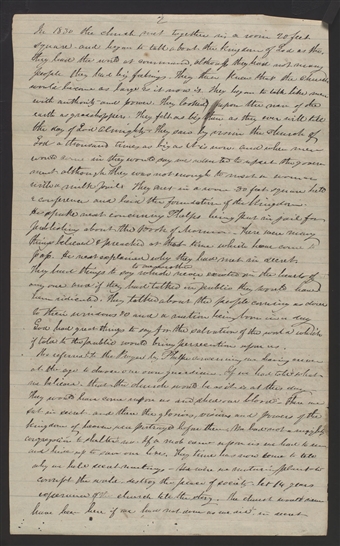 2
In 1830 the church met together in a room 20 feet
square and began to talk about the kingdom of God as tho.
they had the world at command, although they had not many
people. They had big feelings. They then knew that the church
would become as large as it now is. They began to talk like men
with authority and power. They looked upon the men of the
earth as grasshoppers. They felt as big then as they ever will till
the day of God Almighty. They saw by vision the church of
God a thousand times as big as it is now. and when men
would come in they would say we wanted to upset the govern
ment although they was not enough to meet a woman
with a milk pail. They met in a room 20 feet square held
a conference and laid the foundation of the kingdom.
He spoke next concerning Phelps being put in jail for
publishing about the Book of Mormon. There were many
things believed & preached at that time which have come to
pass. He next explained why they had met in secret
They had things to say to one another which never entered in the hearts of
any one and if they had talked in public they would have
been ridiculed. They talked about the people coming as doves
to their windows and a nation being born in a day
God had great things to say for the salvation of the world which
if told to the public would bring persecution upon us.
He referred to the Prayer by Phelps concerning our having come
at the age to choose our own guardians. If we had told what
we believe that the church would be as it is at this day
they would have come upon us and shed our blood. Then we
sat in secret and there the glories, visions and powers of the
kingdom of heaven were portrayed before them. We had not a mighty
congregation to shelter us. If a mob came upon us we had to run
and hide up to save our lives. The time has now come to tell
why we held secret meetings.
corrupt the world. destroy the peace of society. let 14 years
experience of church tell the story. The church would never
have been here if we had not done as we did in secret